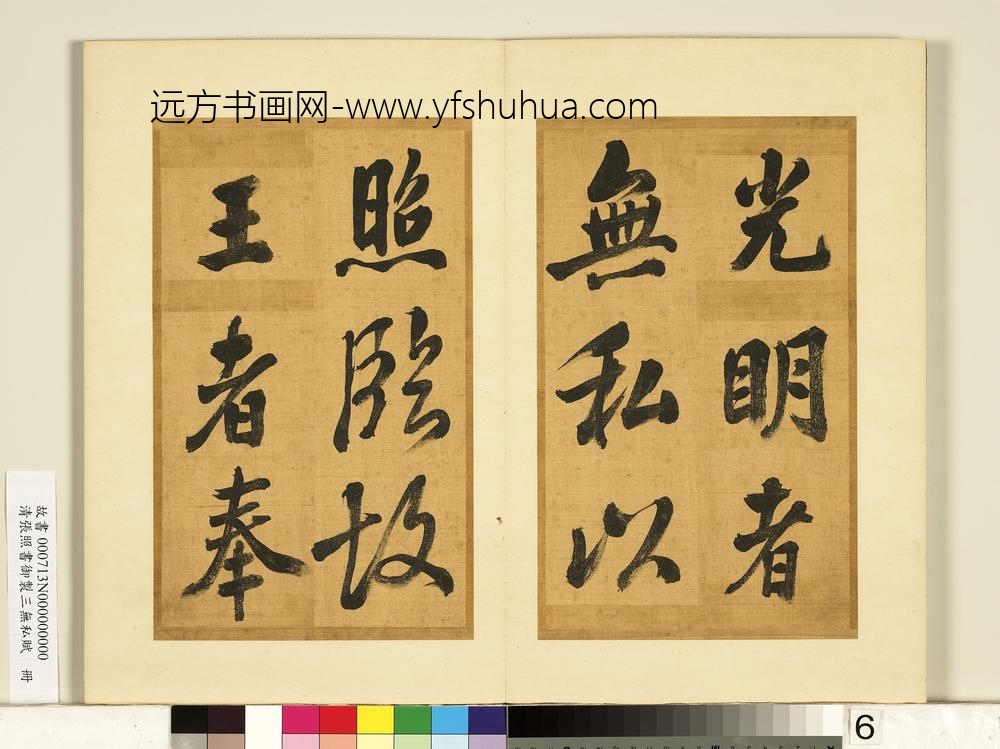 远方书画网-www.yfshuhua.com
光明者
無私以
照臨故
王者奉
故書 000713N000000000
清張照書御製三無私賦 冊
6